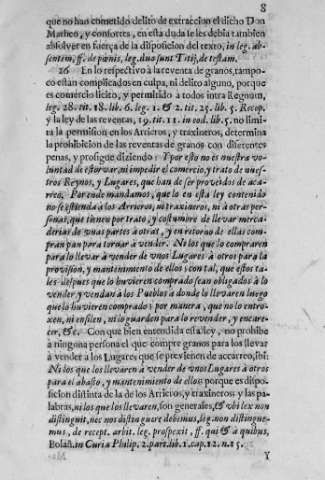 8
que no han cometido delito de extraccion el dicho Don
Matheo, y consortes, en esta duda se les debia tambien
absolver en fuerça de la disposicion del texto, in leg. ab-
sentem, ff. de pœnis, leg. duo sunt Titij, de testam.
26 En lo respectivo à la reventa de granos, tampo-
co estan complicados en culpa, ni delito alguno, porque
es comercio licito, y permitido à todos intra Regnum,
leg. 28. tit. 18. lib. 6. leg. 1. & 2. tit. 25. lib. 5. Recop.
y la ley de las reventas, 19. tit. 11. in eod. lib. 5. no limi-
ta la permision en los Arrieros, y traxineros, determina
la prohibicion de las reventas de granos con diferentes
penas, y prosigue diziendo: Y por esto no es nuestra vo-
luntad de estorvar, ni impedir el comercio, y trato de nues-
tros Reynos, y Lugares, que han de ser proveidos de aca-
rreo. Por ende mandamos, que lo en esta ley contenido
no se estienda à los Arrieros, ni traxineros, ni à otras per-
sonas, que tienen por trato, y costumbre de llevar merca-
derias de vnas partes à otras, y en retorno de ellas com-
pran pan para tornar à vender. Ni los que lo compraren
para lo llevar à vender de vnos Lugares à otros para la
provision, y mantenimiento de ellos; con tal, que estos ta-
les despues que lo huvieren comprado sean obligados à lo
vender, y vendan à los Pueblos à donde lo llevaren luego
que lo huvieren comprado: por manera, que no lo entro-
xen, ni ensilen, ni lo guarden para lo revender, y encare-
cer, &c. Con que bien entendida esta ley, no prohibe
à ninguna persona el que compre granos para los llevar
à vender à los Lugares que se previenen de accarreo, ibi:
Ni los que los llevaren à vender de vnos Lugares à otros
para el abasto, y mantenimiento de ellos; porque es dispo-
sicion distinta de la de los Arrieros, y traxineros y las pa-
labras, ni los que los llevaren, son generales, & vbi lex non
distinguit, nec nos distinguere debemus, leg. non distingue-
mus, de recept. arbit. leg. prospexit, ff. qui & à quibus,
Bolañ. in Curia Philip. 2. part. lib. 1. cap. 12. n. 15.
Y